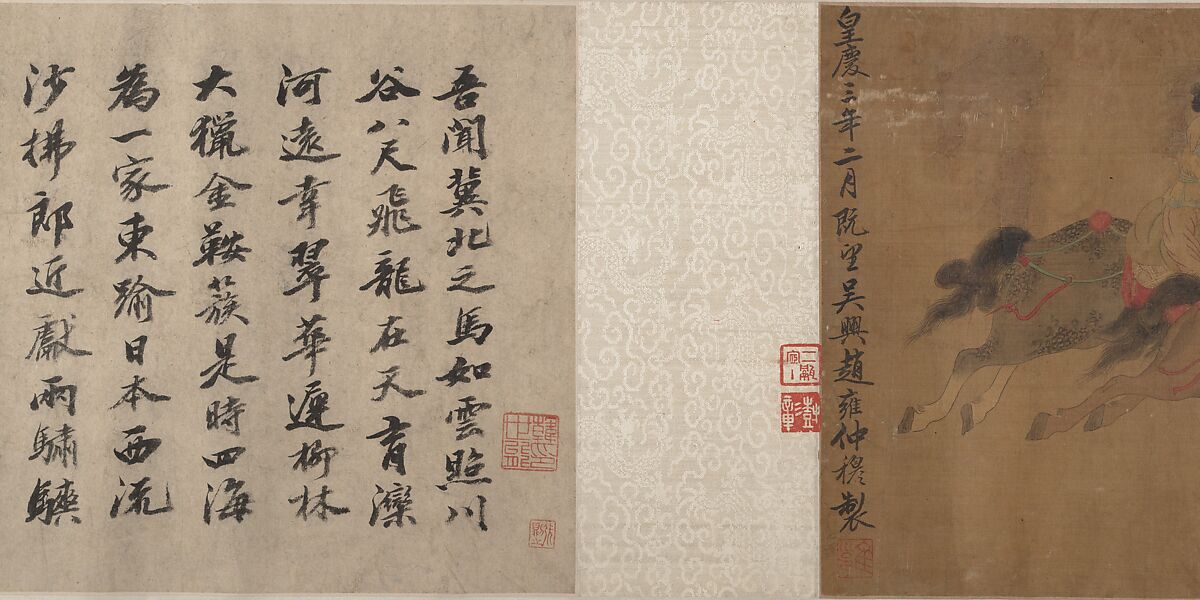 皇慶三年二月既望吳興趙雍仲穆製
吾聞冀北之馬如雲照川
谷八尺飛龍在天育灤
河遠幸翠華遲柳林
大獵金鞍簇是時四海
為一家東踰日本西流
沙拂郎近獻兩驌